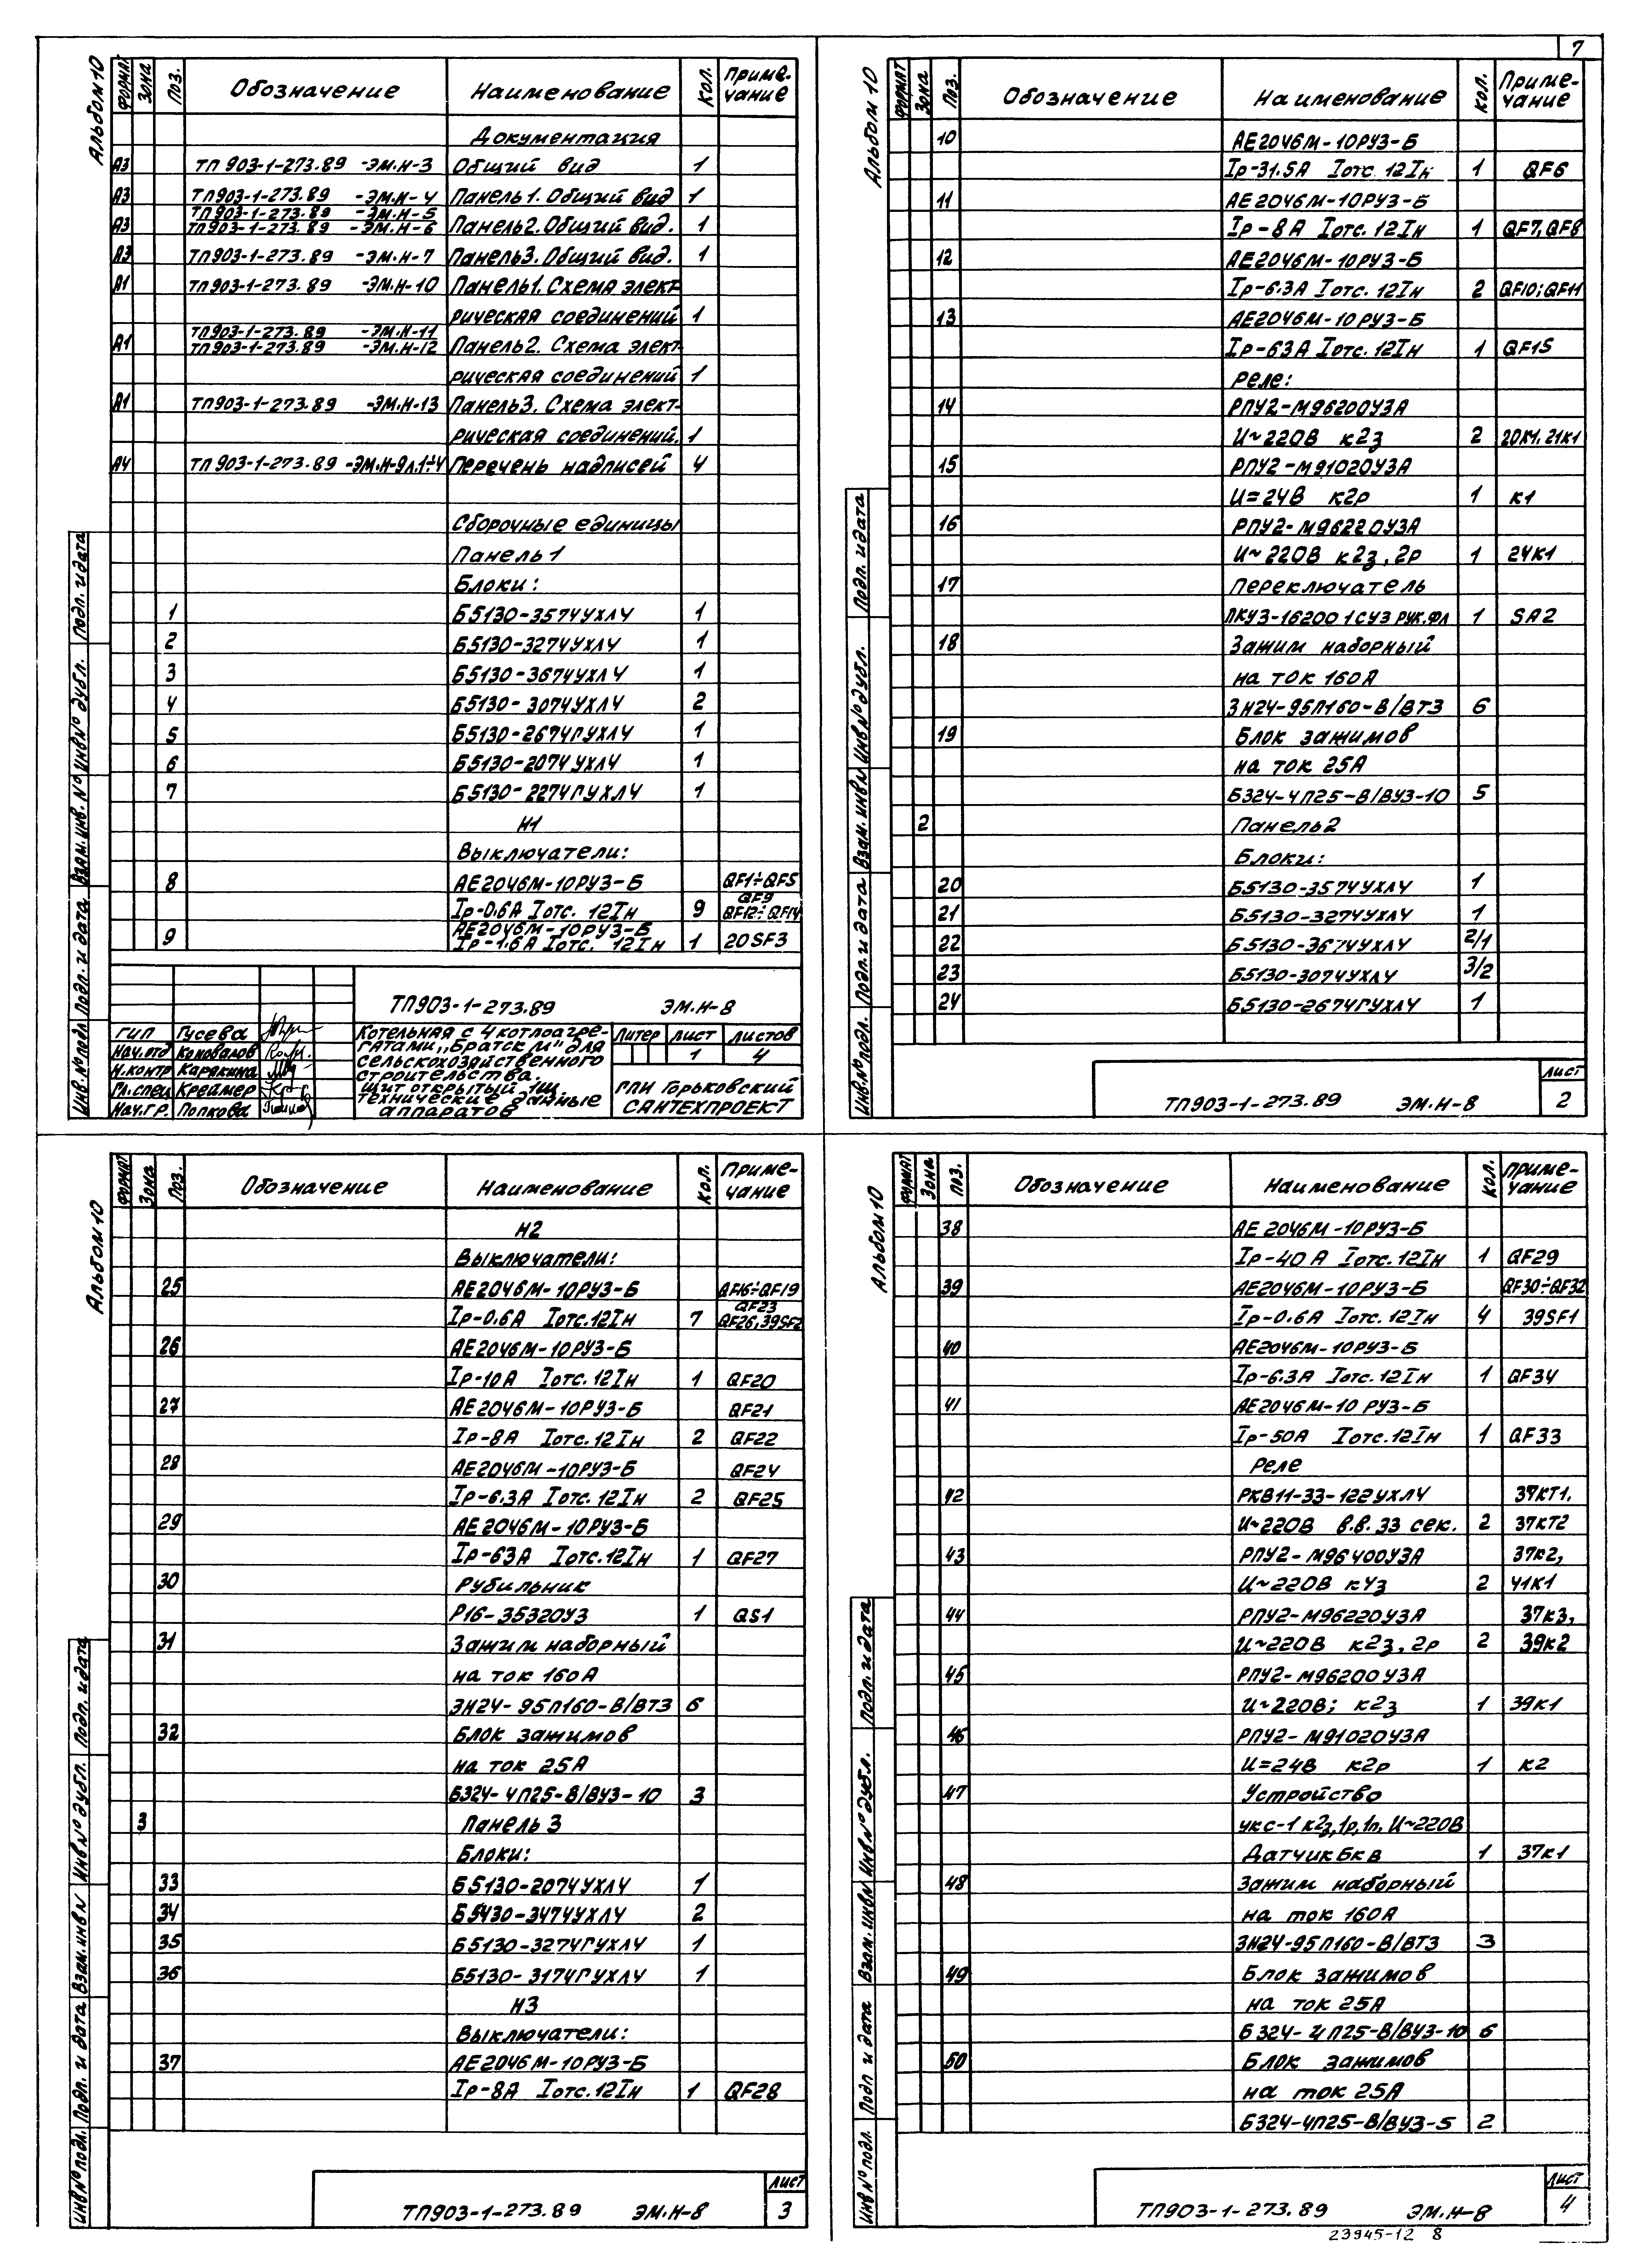 7
Альбом 10
Формат Зона Поз. Обозначение Наименование Кол. Примечание
Документация
А3 ТП 903-1-273.89 -ЭМ.Н-3 Общий вид 1
А3 ТП903-1-273.89 -ЭМ.Н-4 Панель 1. Общий вид 1
ТП903-1-273.89 -ЭМ.Н-5
А3 ТП903-1-273.89 -ЭМ.Н-6 Панель2. Общий вид. 1
А3 ТП903-1-273.89 -ЭМ.Н-7 Панель3. Общий вид. 1
А1 ТП903-1-273.89 -ЭМ.Н-10 Панель1. Схема элект-
рическая соединений 1
ТП903-1-273.89 -ЭМ.Н-11
А1 ТП903-1-273.89 -ЭМ.Н-12 Панель2. Схема элект-
рическая соединений 1
А1 ТП903-1-273.89 -ЭМ.Н-13 Панель3. Схема элект-
рическая соединений. 1
А4 ТП 903-1-273.89 -ЭМ.Н-9л.1÷4 Перечень надписей 4
Сборочные единицы
Панель 1
Блоки:
1 Б5130-3574УХЛ4 1
2 Б5130-3274УХЛ4 1
3 Б5130-3674УХЛ4 1
4 Б5130-3074УХЛ4 2
5 Б5130-2674ГУХЛ4 1
6 Б5130-2074УХЛ4 1
7 Б5130-2274ГУХЛ4 1
Н1
Выключатели:
8 АЕ2046М-10РУЗ-Б QF1÷QF5
QF9
Iр-0.6А Iотс. 12Iн 9 QF12÷QF14
АЕ2046М-10РУЗ-Б
9 Iр-1.6А Iотс. 12Iн 1 20SF3
ТП903-1-273.89 ЭМ.Н-8
ГИП Гусева
Нач.отд Коновалов
Н.контр Карякина
Гл.спец Креймер
Нач.гр. Попкова
Котельная с 4 котлоагре-
гатами "Братск М" для
сельскохозяйственного
строительства.
Щит открытый 1Щ.
Технические данные
аппаратов
Литер Лист Листов
1 4
ГПИ Горьковский
САНТЕХПРОЕКТ
Инв.№подл. Подп. и дата Взам.инв.№ Инв№ дубл. Подп. и дата
Альбом 10
Формат Зона Поз. Обозначение Наименование Кол. Примечание
10 АЕ2046М-10РУЗ-Б
Iр-31.5А Iотс. 12Iн 1 QF6
11 АЕ2046М-10РУЗ-Б
Iр-8А Iотс. 12Iн 1 QF7, QF8
12 АЕ2046М-10РУЗ-Б
Iр-6.3А Iотс. 12Iн 2 QF10; QF11
13 АЕ2046М-10РУЗ-Б
Iр-63А Iотс. 12Iн 1 QF15
Реле:
14 РПУ2-М96200УЗА
U~220В к2з 2 20К1. 21К1
15 РПУ2-М91020УЗА
U=24В к2р 1 К1
16 РПУ2-М96220УЗА
U~220В к2з, 2р 1 24К1
17 Переключатель
ПКУЗ-16200 1СУЗ рук.фл 1 SA2
18 Зажим наборный
на ток 160А
ЗН24-95П160-В/ВТЗ 6
19 Блок зажимов
на ток 25А
БЗ24-4П25-В/ВУЗ-10 5
2 Панель 2
Блоки:
20 Б5130-3574УХЛ4 1
21 Б5130-3274УХЛ4 1
22 Б5130-3674УХЛ4 2/1
23 Б5130-3074УХЛ4 3/2
24 Б5130-2674ГУХЛ4 1
ТП903-1-273.89 ЭМ.Н-8 Лист 2
Инв.№подл. Подп. и дата Взам.инв№ Инв№ дубл. Подп. и дата
Альбом 10
Формат Зона Поз. Обозначение Наименование Кол. Примечание
Н2
Выключатели:
25 АЕ2046М-10РУЗ-Б QF16÷QF19
QF23
Iр-0.6А Iотс. 12Iн 7 QF26, 39SF2
26 АЕ2046М-10РУЗ-Б
Iр-10А Iотс. 12Iн 1 QF20
27 АЕ2046М-10РУЗ-Б QF21
Iр-8А Iотс. 12Iн 2 QF22
28 АЕ2046М-10РУЗ-Б QF24
Iр-6.3А Iотс. 12Iн 2 QF25
29 АЕ2046М-10РУЗ-Б
Iр-63А Iотс. 12Iн 1 QF27
30 Рубильник
Р16-35320УЗ 1 QS1
31 Зажим наборный
на ток 160А
ЗН24-95П160-В/ВТЗ 6
32 Блок зажимов
на ток 25А
БЗ24-4П25-В/ВУЗ-10 3
3 Панель 3
Блоки:
33 Б5130-2074УХЛ4 1
34 Б5430-3474УХЛ4 2
35 Б5130-3274ГУХЛ4 1
36 Б5130-3174ГУХЛ4 1
Н3
Выключатели:
37 АЕ2046М-10РУЗ-Б
Iр-8А Iотс. 12Iн 1 QF28
ТП903-1-273.89 ЭМ.Н-8 Лист 3
Инв№подл. Подп. и дата Взам.инв№ Инв№ дубл. Подп. и дата
Альбом 10
Формат Зона Поз. Обозначение Наименование Кол. Примечание
38 АЕ2046М-10РУЗ-Б
Iр-40А Iотс. 12Iн 1 QF29
39 АЕ2046М-10РУЗ-Б QF30÷QF32
Iр-0.6А Iотс. 12Iн 4 39SF1
40 АЕ2046М-10РУЗ-Б
Iр-6.3А Iотс. 12Iн 1 QF34
41 АЕ2046М-10РУЗ-Б
Iр-50А Iотс. 12Iн 1 QF33
Реле
42 РКВ11-33-122УХЛ4 37КТ1.
U~220В в.в. 33 сек. 2 37КТ2
43 РПУ2-М96400УЗА 37К2,
U~220В к4з 2 41К1
44 РПУ2-М96220УЗА 37К3,
U~220В к2з, 2р 2 39К2
45 РПУ2-М96200УЗА
U~220В; к2з 1 39К1
46 РПУ2-М91020УЗА
U=24В к2р 1 К2
47 Устройство
УКС-1 к2з,1р,1п, U~220В
Датчик БКВ 1 37К1
48 Зажим наборный
на ток 160А
ЗН24-95П160-В/ВТЗ 3
49 Блок зажимов
на ток 25А
БЗ24-4П25-В/ВУЗ-10 6
50 Блок зажимов
на ток 25А
БЗ24-4П25-В/ВУЗ-5 2
ТП903-1-273.89 ЭМ.Н-8 Лист 4
Инв№подл. Подп и дата Взам.инв№ Инв№ дубл. Подп. и дата
23945-12 8